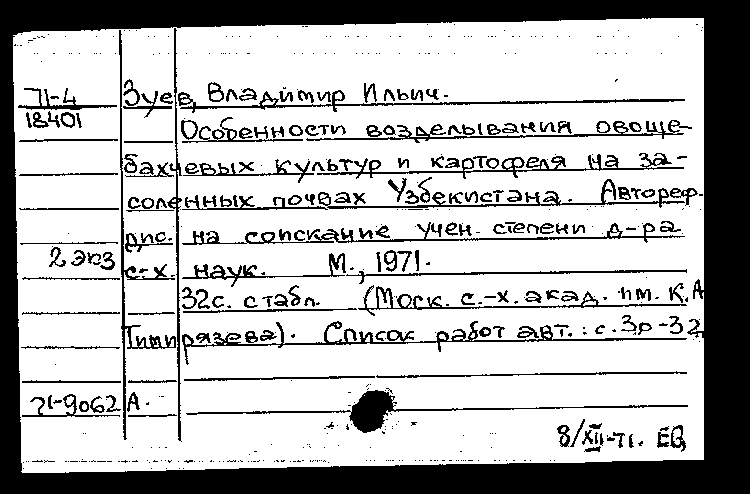 71-4 Зуев, Владимир Ильич.
18401
Особенности возделывания овоще-
бахчевых культур и картофеля на за-
соленных почвах Узбекистана. Автореф.
дис. на соискание учен. степени д-ра
2 экз с.-х. наук. М., 1971.
32с. с табл. (Моск. с.-х. акад. им. К.А
Тимирязева). Список работ авт.: с. 30-32
71-9062 А.
8/XII-71. ЕВ